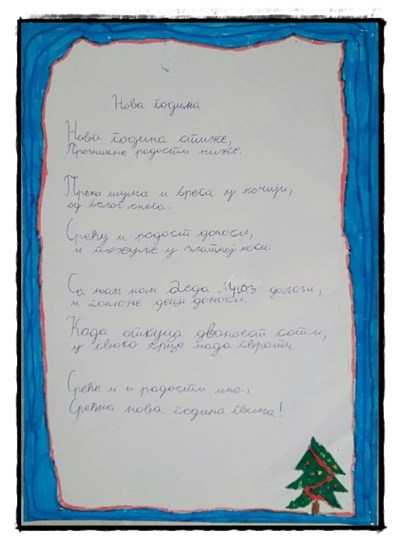 Нова година
Нова година стиже,
радости ниже.
Преко шума и брега у кочији,
од белог снега.
Срећу и радост доноси,
и у златној коси.
Са њом нам Деда Мраз долази,
и поклоне деци доноси.
Када откуца дванаест сати,
у свако срце нада сврати
Среће и и радости
Срећна нова година свима!